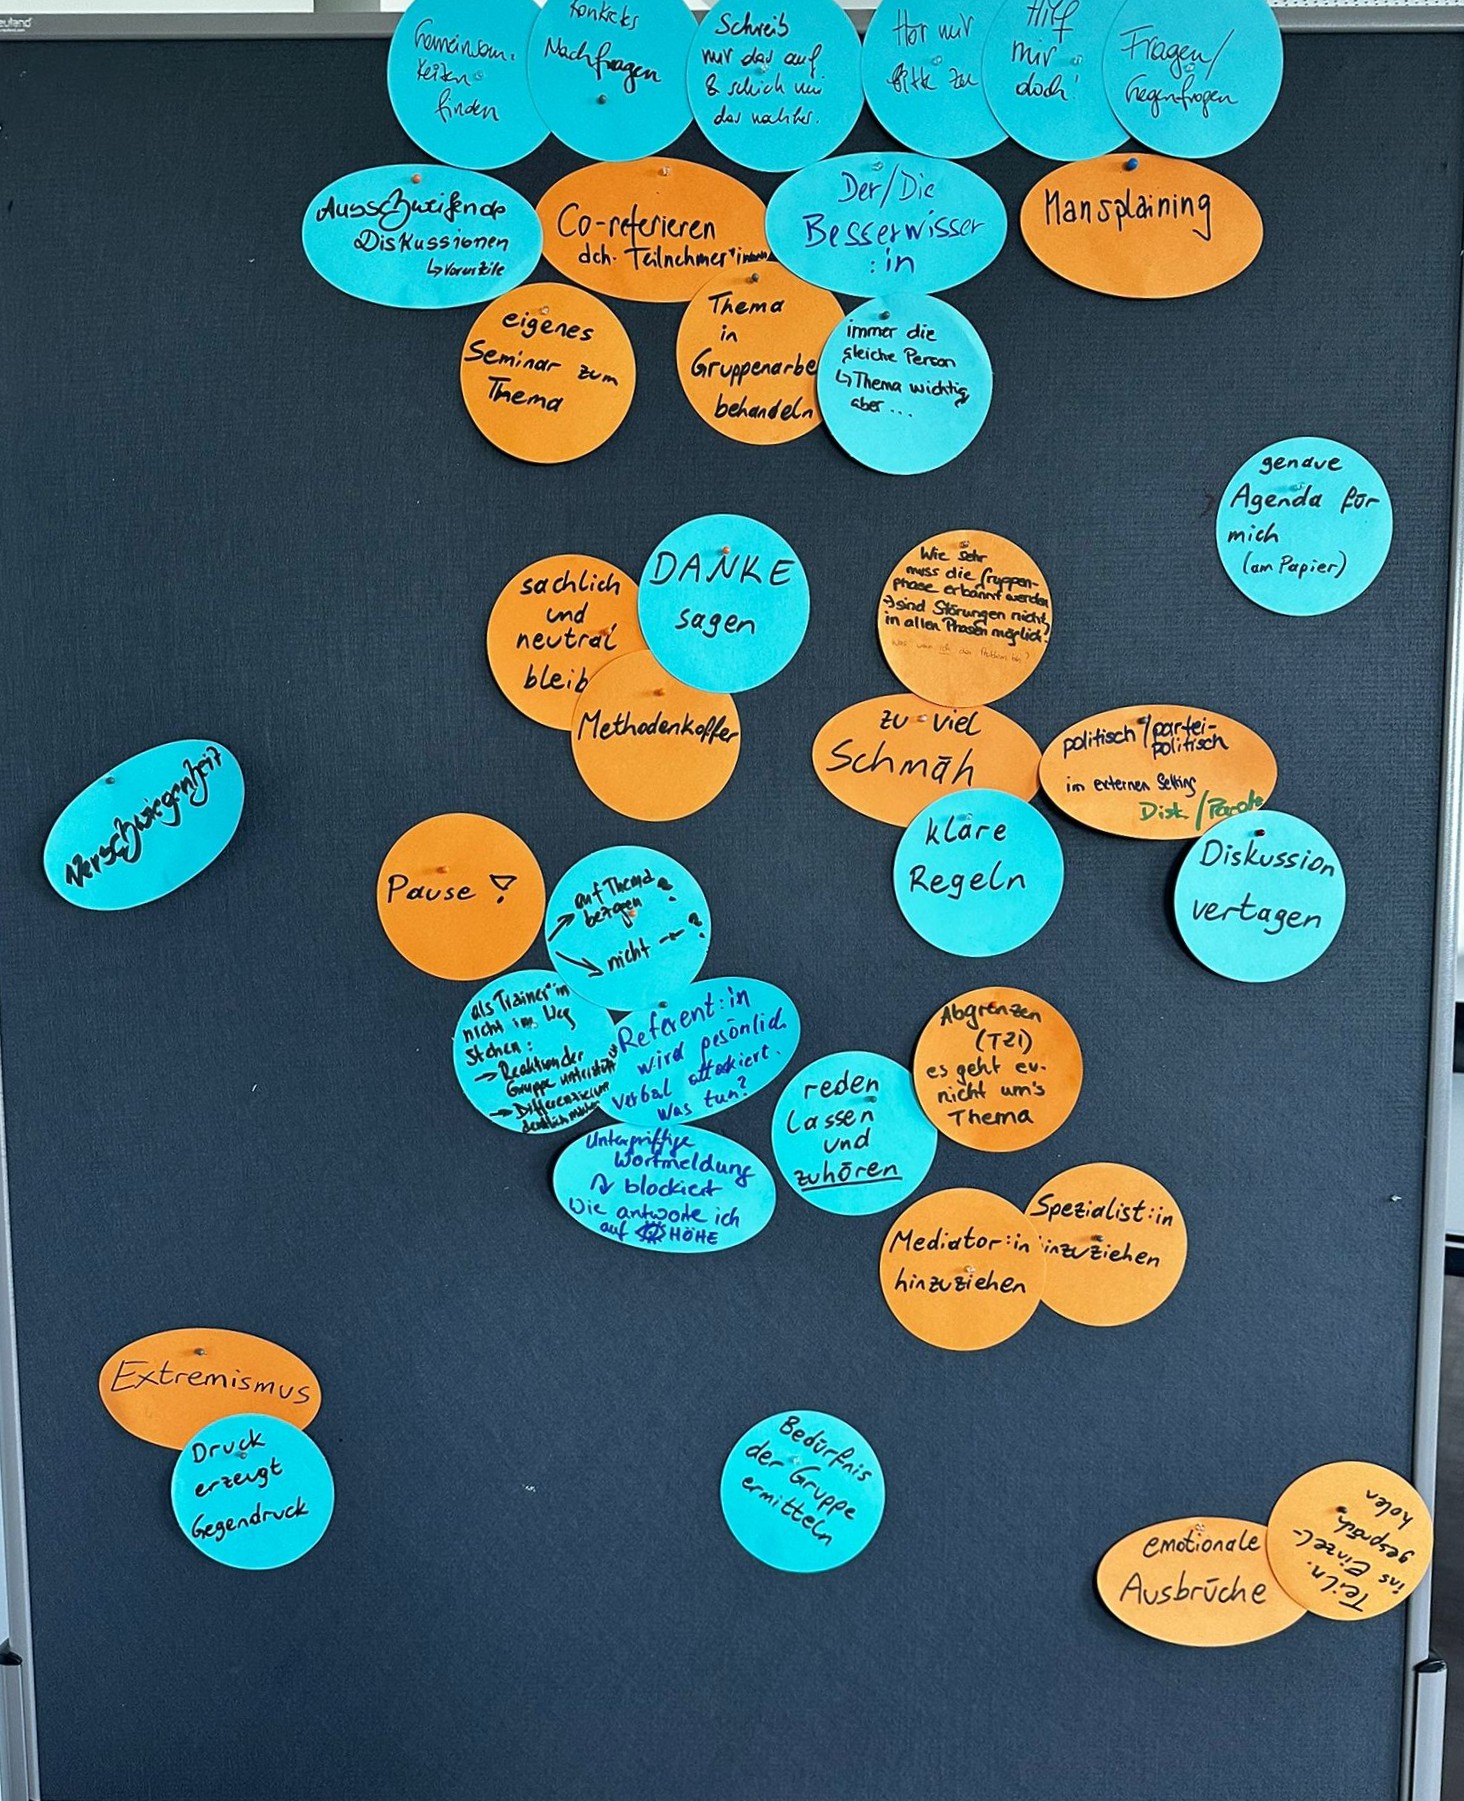 Gemeinsam-
keiten
finden
konkretes
Nachfragen
Schreib
mir das auf
& schick mir
das nachher.
Hör mir
bitte zu
Hilf
mir
doch!
Fragen/
Gegenfragen
Ausschweifende
Diskussionen
↳ Vorurteile
Co-referieren
dch. Teilnehmer*innen
Der/Die
Besserwisser
:in
Mansplaining
eigenes
Seminar zum
Thema
Thema
in
Gruppenarbe
behandeln
immer die
gleiche Person
↳ Thema wichtig,
aber ...
genaue
Agenda für
mich
(am Papier)
sachlich
und
neutral
bleib
DANKE
sagen
Methodenkoffer
Wie sehr
muss die Gruppen-
phase erkannt werden
→ sind Störungen nicht
in allen Phasen möglich?
Was wenn ich das Problem bin?
zu viel
Schmäh
politisch/partei-
politisch
im externen Setting
Disk./Parole
klare
Regeln
Diskussion
vertagen
Verschwiegenheit
Pause!
→ auf Thema
bezogen ?
→ nicht -"- ?
als Trainer*in
nicht im Weg
stehen:
→ Reaktion der
Gruppe unterstützen
→ Differenzierung
deutlich machen
Referent:in
wird pesönlich
verbal attackiert.
Was tun?
Untergriffige
Wortmeldung
↷ blockiert
Wie antworte ich
auf HÖHE
reden
lassen
und
zuhören
Abgrenzen
(TZI)
es geht ev.
nicht um's
Thema
Mediator:in
hinzuziehen
Spezialist:in
inzuziehen
Extremismus
Druck
erzeugt
Gegendruck
Bedürfnis
der Gruppe
ermitteln
emotionale
Ausbrüche
Teiln.
ins Einzel-
gespräch
holen